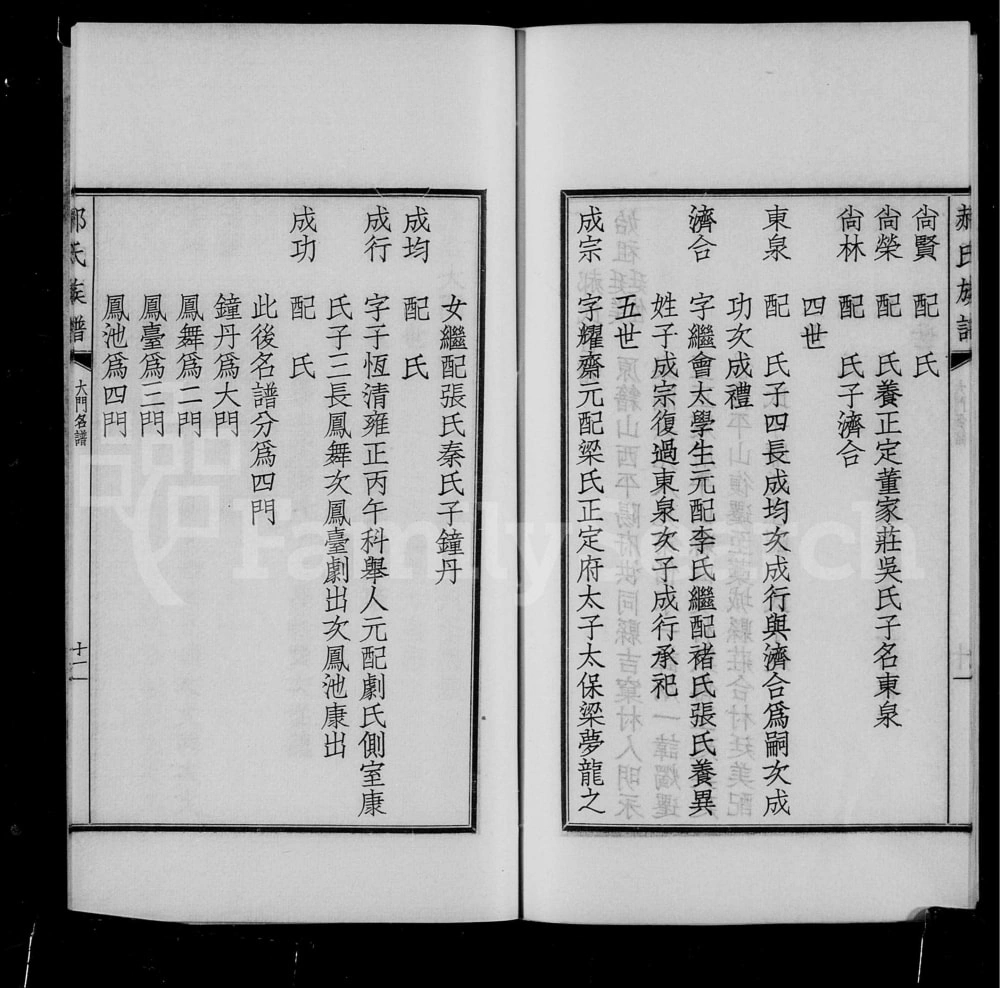 郝氏族譜
尙賢 配 氏
尙榮 配 氏養正定董家莊吳氏子名東泉
尙林 配 氏子濟合
四世
東泉 配 氏子四長成均次成行與濟合爲嗣次成
功次成禮
濟合 字繼會太學生元配李氏繼配褚氏張氏養異
姓子成宗復過東泉次子成行承祀
五世
成宗 字耀齋元配梁氏正定府太子太保梁夢龍之
女繼配張氏秦氏子鐘丹
成均 配 氏
成行 字子恆清雍正丙午科舉人元配劇氏側室康
氏子三長鳳舞次鳳臺劇出次鳳池康出
成功 配 氏
此後名譜分爲四門
鐘丹爲大門
鳳舞爲二門
鳳臺爲三門
鳳池爲四門
郝氏族譜 大門名譜 十一
FamilySearch